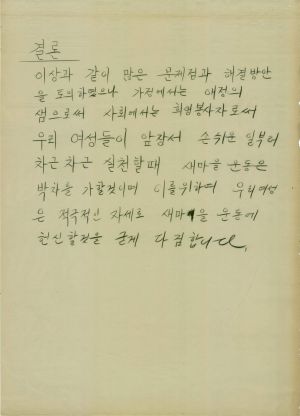 결론
이상과 같이 많은 문제점과 해결방안
을 토의하였으나 가정에서는 애정의
샘으로써 사회에서는 희생봉사자로써
우리 여성들이 앞장서 손쉬운 일부터
차근 차근 실천할때 새마을 운동은
박차를 가할것이며 이를위하여 우리여성
은 적극적인 자세로 새마을 운동에
헌신할것을 굳게 다짐합니다.